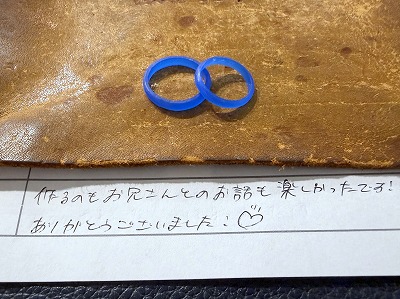 作るのもお兄さんとのお話も楽しかったです!
ありがとうございました!♡